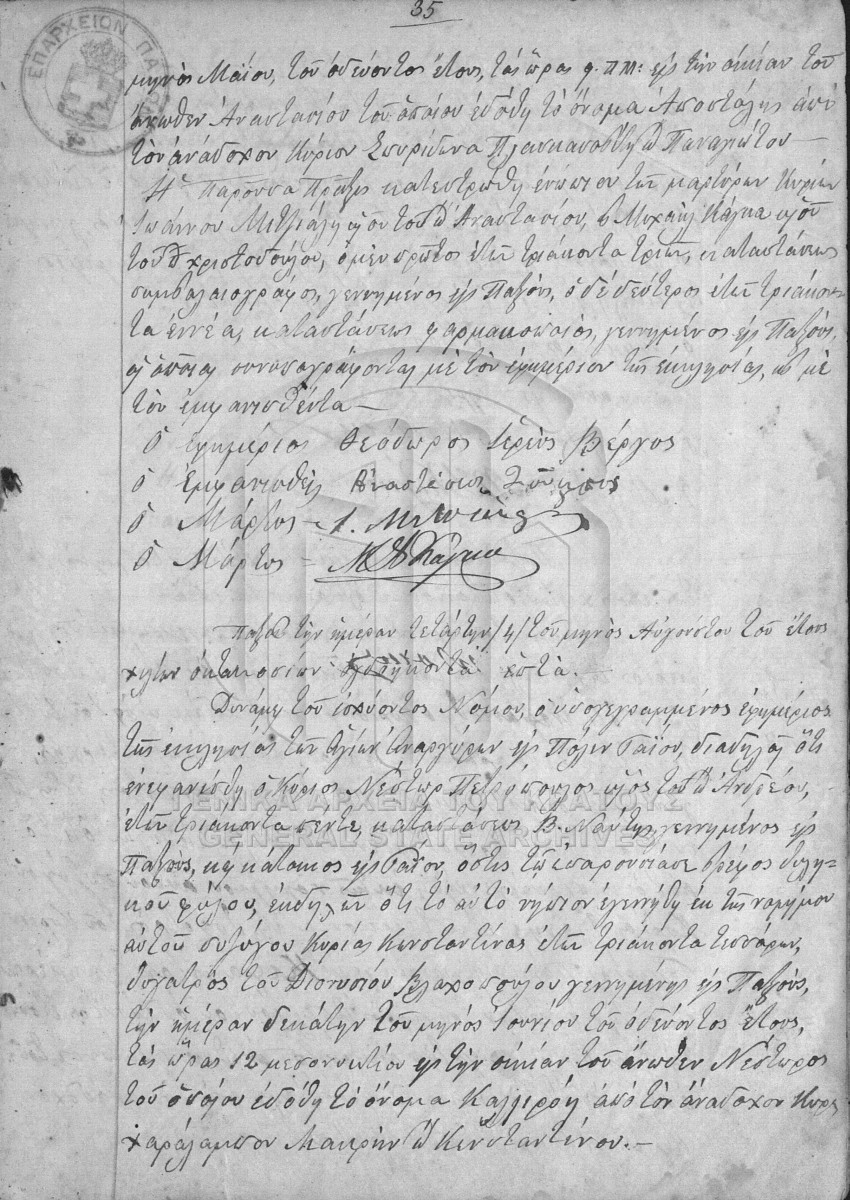 35
ΕΠΑΡΧΕΙΟΝ ΠΑΞΩΝ
μηνός Μαΐου, τοῦ ὁδεύοντος ἔτους, τάς ὥρας 9. πμ: εἰς τήν οἰκίαν τοῦ
ἄνωθεν Ἀναστασίου τοῦ ὁποίου ἐδόθη τό ὄνομα Ἀποστόλης ἀπό
τόν ἀνάδοχον Κύριον Σπυρίδωνα Παναγιώτου —
Ἡ παροῦσα Πρᾶξις κατεστρώθη ἐνώπιον τῶν μαρτύρων Κυρίων
Ἰωάννου Μιτσιάλη υἱοῦ τοῦ Ἀναστασίου, Μιχαήλ Κάγκα υἱοῦ
τοῦ Χριστοδούλου, ὁ μέν πρῶτος ἐτῶν τριάκοντα τριῶν, καταστάσεως
συμβολαιογράφος, γεννημένος εἰς Παξούς, ὁ δέ δεύτερος ἐτῶν τριάκον-
τα ἐννέα, καταστάσεως φαρμακοποιός, γεννημένος εἰς Παξούς,
οἱ ὁποῖοι συνυπογράφονται μέ τόν ἐφημέριον τῆς ἐκκλησίας, καί μέ
τόν ἐμφανισθέντα —
Ὁ Ἐφημέριος Θεόδωρος Ἱερεύς Βέργος
Ὁ Ἐμφανισθείς Ἀναστάσιος
Ὁ Μάρτυς – Ι.
Ὁ Μάρτυς – Μ Χ Κάγκα
Παξοί τήν ἡμέραν τετάρτην /4/ τοῦ μηνός Αὐγούστου τοῦ ἔτους
χιλίων ὀκτακοσίων ὀγδοήκοντα ἑπτά. —
Δυνάμει τοῦ ἰσχύοντος Νόμου, ὁ ὑπογεγραμμένος ἐφημέριος
τῆς ἐκκλησίας τῶν Ἁγίων Ἀναργύρων εἰς Πόλιν Γαΐου, διαδηλοῖ ὅτι
ἐνεφανίσθη ὁ Κύριος Νέστωρ Πετρόπουλος υἱός τοῦ Ἀνδρέου,
ἐτῶν τριάκοντα πέντε, καταστάσεως Β. Ναύτης, γεννημένος εἰς
Παξούς, καί κάτοικος εἰς Γάϊον, ὅστις τῷ ἐπαρουσίασε βρέφος θηλυ-
κοῦ φύλου, ἐκδηλῶν ὅτι τό αὐτό νήπιον ἐγεννήθη ἐκ τῆς νομίμου
αὐτοῦ συζύγου Κυρίας Κωνσταντίνας ἐτῶν τριάκοντα τεσσάρων,
θυγατρός τοῦ Διονυσίου Βλαχοπούλου γεννημένης εἰς Παξούς,
τήν ἡμέραν δεκάτην τοῦ μηνός Ἰουνίου τοῦ ὁδεύοντος ἔτους,
τάς ὥρας 12 μεσονυκτίου εἰς τήν οἰκίαν τοῦ ἄνωθεν Νέστωρος
τοῦ ὁποίου ἐδόθη τό ὄνομα Καλλιρόη ἀπό τόν ἀνάδοχον Κύριον
Χαράλαμπον Μακρῆν Κωνσταντίνου. —
ΓΕΝΙΚΑ ΑΡΧΕΙΑ ΤΟΥ ΚΡΑΤΟΥΣ
GENERAL STATE ARCHIVES